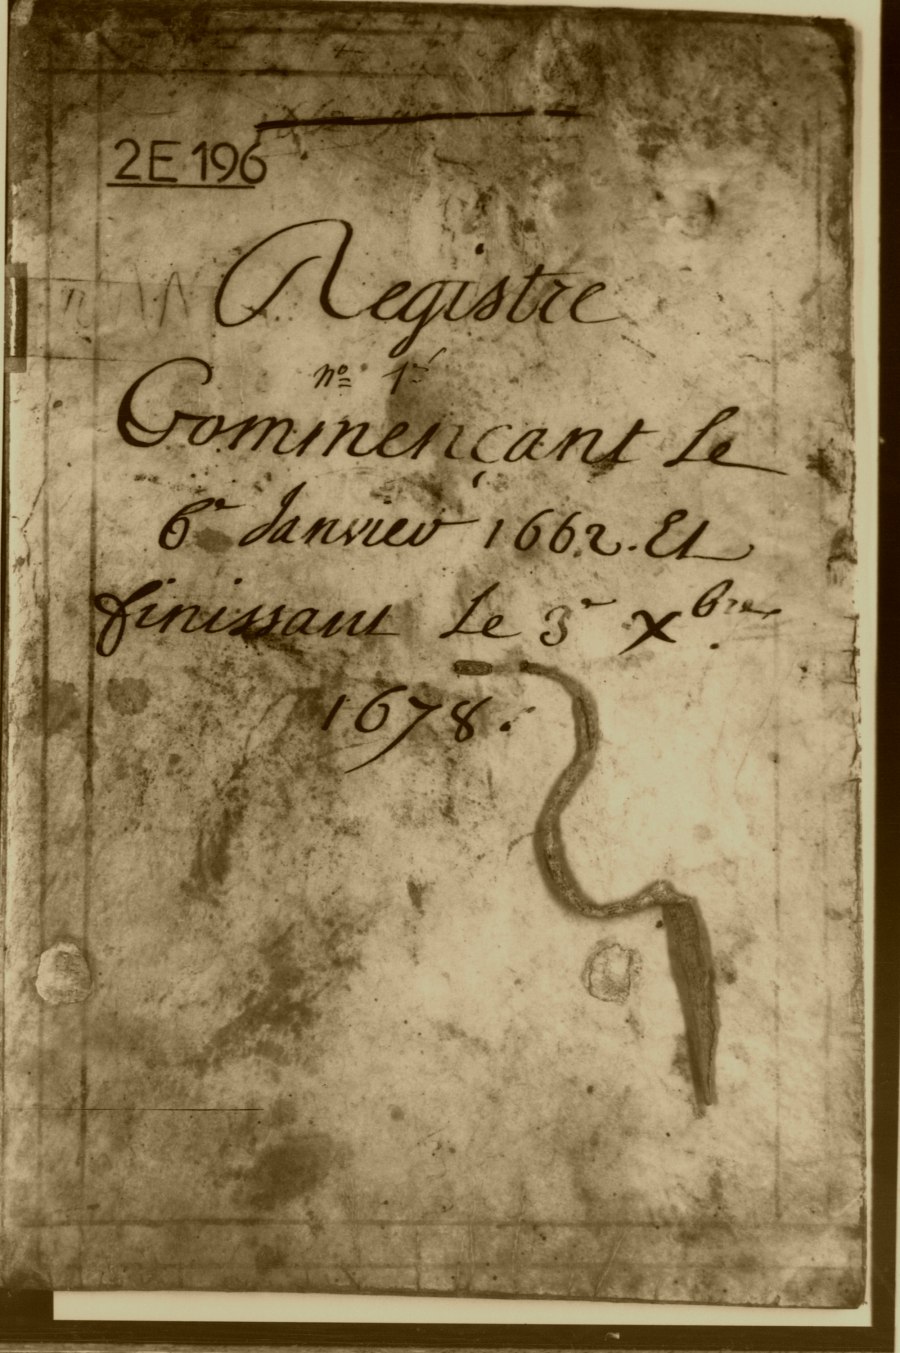 2E196
Registre
nº 1er
Commençant Le
6e Janvier 1662. Et
finissant Le 3e Xbre
1678.